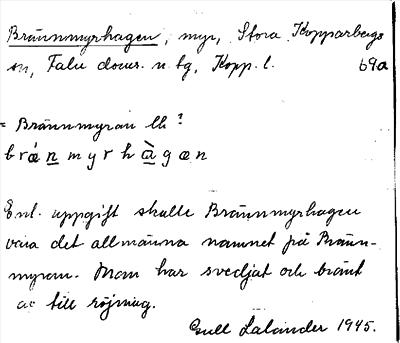 Brännmyrhagen, myr, Stora Kopparbergs
sn, Falu doms. n. tg, Kopp. l. 69a
= Brännmyran lh?
bræ̀n̲myrhà̲gæn
Enl. uppgift skulle Brännmyrhagen
vara det allmänna namnet på Bränn-
myran. Man har svedjat och bränt
av till röjning.
Gull Lalander 1945.